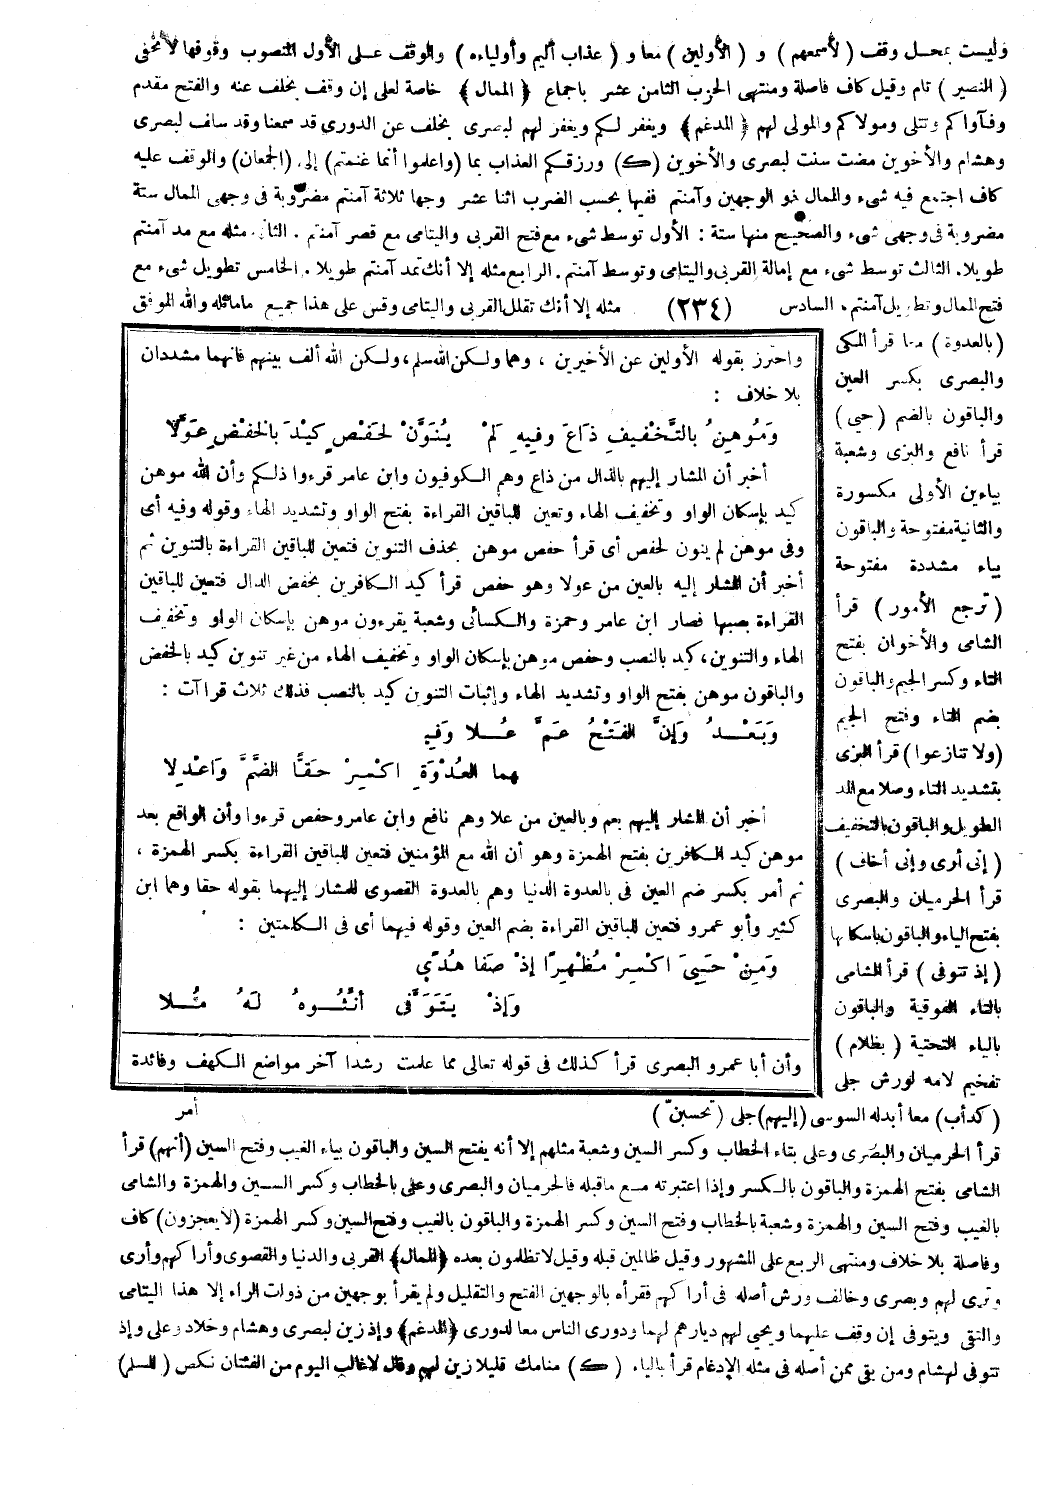 وليست بمحل وقف ( لأسمعهم ) و ( الأولين ) معا و ( عذاب أليم وأولياءه ) والوقف على الأول المنصوب وقوفها لا تخفى
( النصير ) تام وقيل كاف فاصلة ومنتهى الحزب الثامن عشر باجماع ﴿ الممال ﴾ خاصة لعلى إن وقف بخلف عنه والفتح مقدم
وفآواكم وتتلى ومولاكم والمولى لهم ﴿ المدغم ﴾ ويغفر لكم ويغفر لهم لبصرى بخلف عن الدورى قد سمعنا وقد سلف لبصرى
وهشام والأخوين مضت سنت لبصرى والأخوين (ك) ورزقكم العذاب بما (واعلموا أنما غنمتم) إلى (الجمعان) والوقف عليه
كاف اجتمع فيه شىء والممال ذو الوجهين وآمنتم ففيها بحسب الضرب اثنا عشر وجها ثلاثة آمنتم مضروبة فى وجهى الممال ستة
مضروبة فى وجهى شىء والصحيح منها ستة : الأول توسط شىء مع فتح القربى واليتامى مع قصر آمنتم . الثانى مثله مع مد آمنتم
طويلا. الثالث توسط شىء مع إمالة القربى واليتامى وتوسط آمنتم. الرابع مثله إلا أنك تمد آمنتم طويلا . الخامس تطويل شىء مع
فتح الممال وتطويل آمنتم، السادس (٢٣٤) مثله إلا أنك تقلل القربى واليتامى وقس على هذا جميع ماماثله والله الموفق
(بالعدوة) معا قرأ المكى
والبصرى بكسر العين
والباقون بالضم (حيى)
قرأ نافع والبزى وشعبة
بياءين الأولى مكسورة
والثانية مفتوحة والباقون
بياء مشددة مفتوحة
(ترجع الأمور) قرأ
الشامى والأخوان بفتح
التاء وكسر الجيم والباقون
بضم التاء وفتح الجيم
(ولا تنازعوا) قرأ البزى
بتشديد التاء وصلا مع المد
الطويل والباقون بالتخفيف
( إنى أرى وإنى أخاف )
قرأ الحرميان والبصرى
بفتح الياء والباقون باسكانها
( إذ تتوفى ) قرأ الشامى
بالتاء الفوقية والباقون
بالياء التحتية ( بظلام )
تفخيم لامه لورش جلى
واحترز بقوله الأولين عن الأخيرين ، وهما ولكن الله سلم، ولكن الله ألف بينهم فانهما مشددان
بلا خلاف :
وَمُوهِنُ بالتَّخْفِيفِ ذَاعَ وَفِيهِ لَمْ يُنَوَّنْ لحَفْصٍ كَيْدَ بالخَفْضِ عَوَّلَا
أخبر أن المشار إليهم بالذال من ذاع وهم الكوفيون وابن عامر قرءوا ذلكم وأن الله موهن
كيد بإسكان الواو وتخفيف الهاء وتعين للباقين القراءة بفتح الواو وتشديد الهاء وقوله وفيه أى
وفى موهن لم ينون لحفص أى قرأ حفص موهن بحذف التنوين فتعين للباقين القراءة بالتنوين ثم
أخبر أن المشار إليه بالعين من عولا وهو حفص قرأ كيد الكافرين بخفض الدال فتعين للباقين
القراءة بنصبها فصار ابن عامر وحمزة والكسائى وشعبة يقرءون موهن بإسكان الواو وتخفيف
الهاء والتنوين، كيد بالنصب وحفص موهن بإسكان الواو وتخفيف الهاء من غير تنوين كيد بالخفض
والباقون موهن بفتح الواو وتشديد الهاء وإثبات التنوين كيد بالنصب فذلك ثلاث قراآت :
وَبَعْــدُ وَإنَّ الفَتْحُ عَمَّ عُــلا وَفِيـ
ـهِما العُدْوَةِ اكْسِرْ حَقًّا الضَّمَّ وَاعْدِلا
أخبر أن المشار إليهم بعم وبالعين من علا وهم نافع وابن عامر وحفص قرءوا وأن الواقع بعد
موهن كيد الكافرين بفتح الهمزة وهو أن الله مع المؤمنين فتعين للباقين القراءة بكسر الهمزة ،
ثم أمر بكسر ضم العين فى بالعدوة الدنيا وهم بالعدوة القصوى للمشار إليهما بقوله حقا وهما ابن
كثير وأبو عمرو فتعين للباقين القراءة بضم العين وقوله فيهما أى فى الكلمتين :
وَمِنْ حَيِىَ اكْسِرْ مُظْهِرًا إذْ صَفَا هُدًى
وَإذْ يَتَوَفَّى أنِّثُــوهُ لَهُ مُــلا
وأن أبا عمرو البصرى قرأ كذلك فى قوله تعالى مما علمت رشدا آخر مواضع الكهف وفائدة
(كدأب) معا أبدله السوسى (إليهم) جلى (تحسبن) أمر
قرأ الحرميان والبصرى وعلى بتاء الخطاب وكسر السين وشعبة مثلهم إلا أنه يفتح السين والباقون بياء الغيب وفتح السين (أنهم) قرأ
الشامى بفتح الهمزة والباقون بالكسر وإذا اعتبرته مع ماقبله فالحرميان والبصرى وعلى بالخطاب وكسر السين والهمزة والشامى
بالغيب وفتح السين والهمزة وشعبة بالخطاب وفتح السين وكسر الهمزة والباقون بالغيب وفتح السين وكسر الهمزة (لا يعجزون) كاف
وفاصلة بلا خلاف ومنتهى الربع على المشهور وقيل ظالمين قبله وقيل لا تظلمون بعده ﴿الممال﴾ القربى والدنيا والقصوى وأراكهم وأرى
وترى لهم وبصرى وخالف ورش أصله فى أراكهم فقرأه بالوجهين الفتح والتقليل ولم يقرأ بوجهين من ذوات الراء إلا هذا اليتامى
والتقى ويتوفى إن وقف عليهما ويحيى لهم ديارهم لهما ودورى الناس معا لدورى ﴿المدغم﴾ وإذ زين لبصرى وهشام وخلاد وعلى وإذ
تتوفى لهشام ومن بقى ممن أصله فى مثله الإدغام قرأ بالياء (ك) منامك قليلا زين لهم وقال لاغالب اليوم من الفئتان نكص (للسلم)